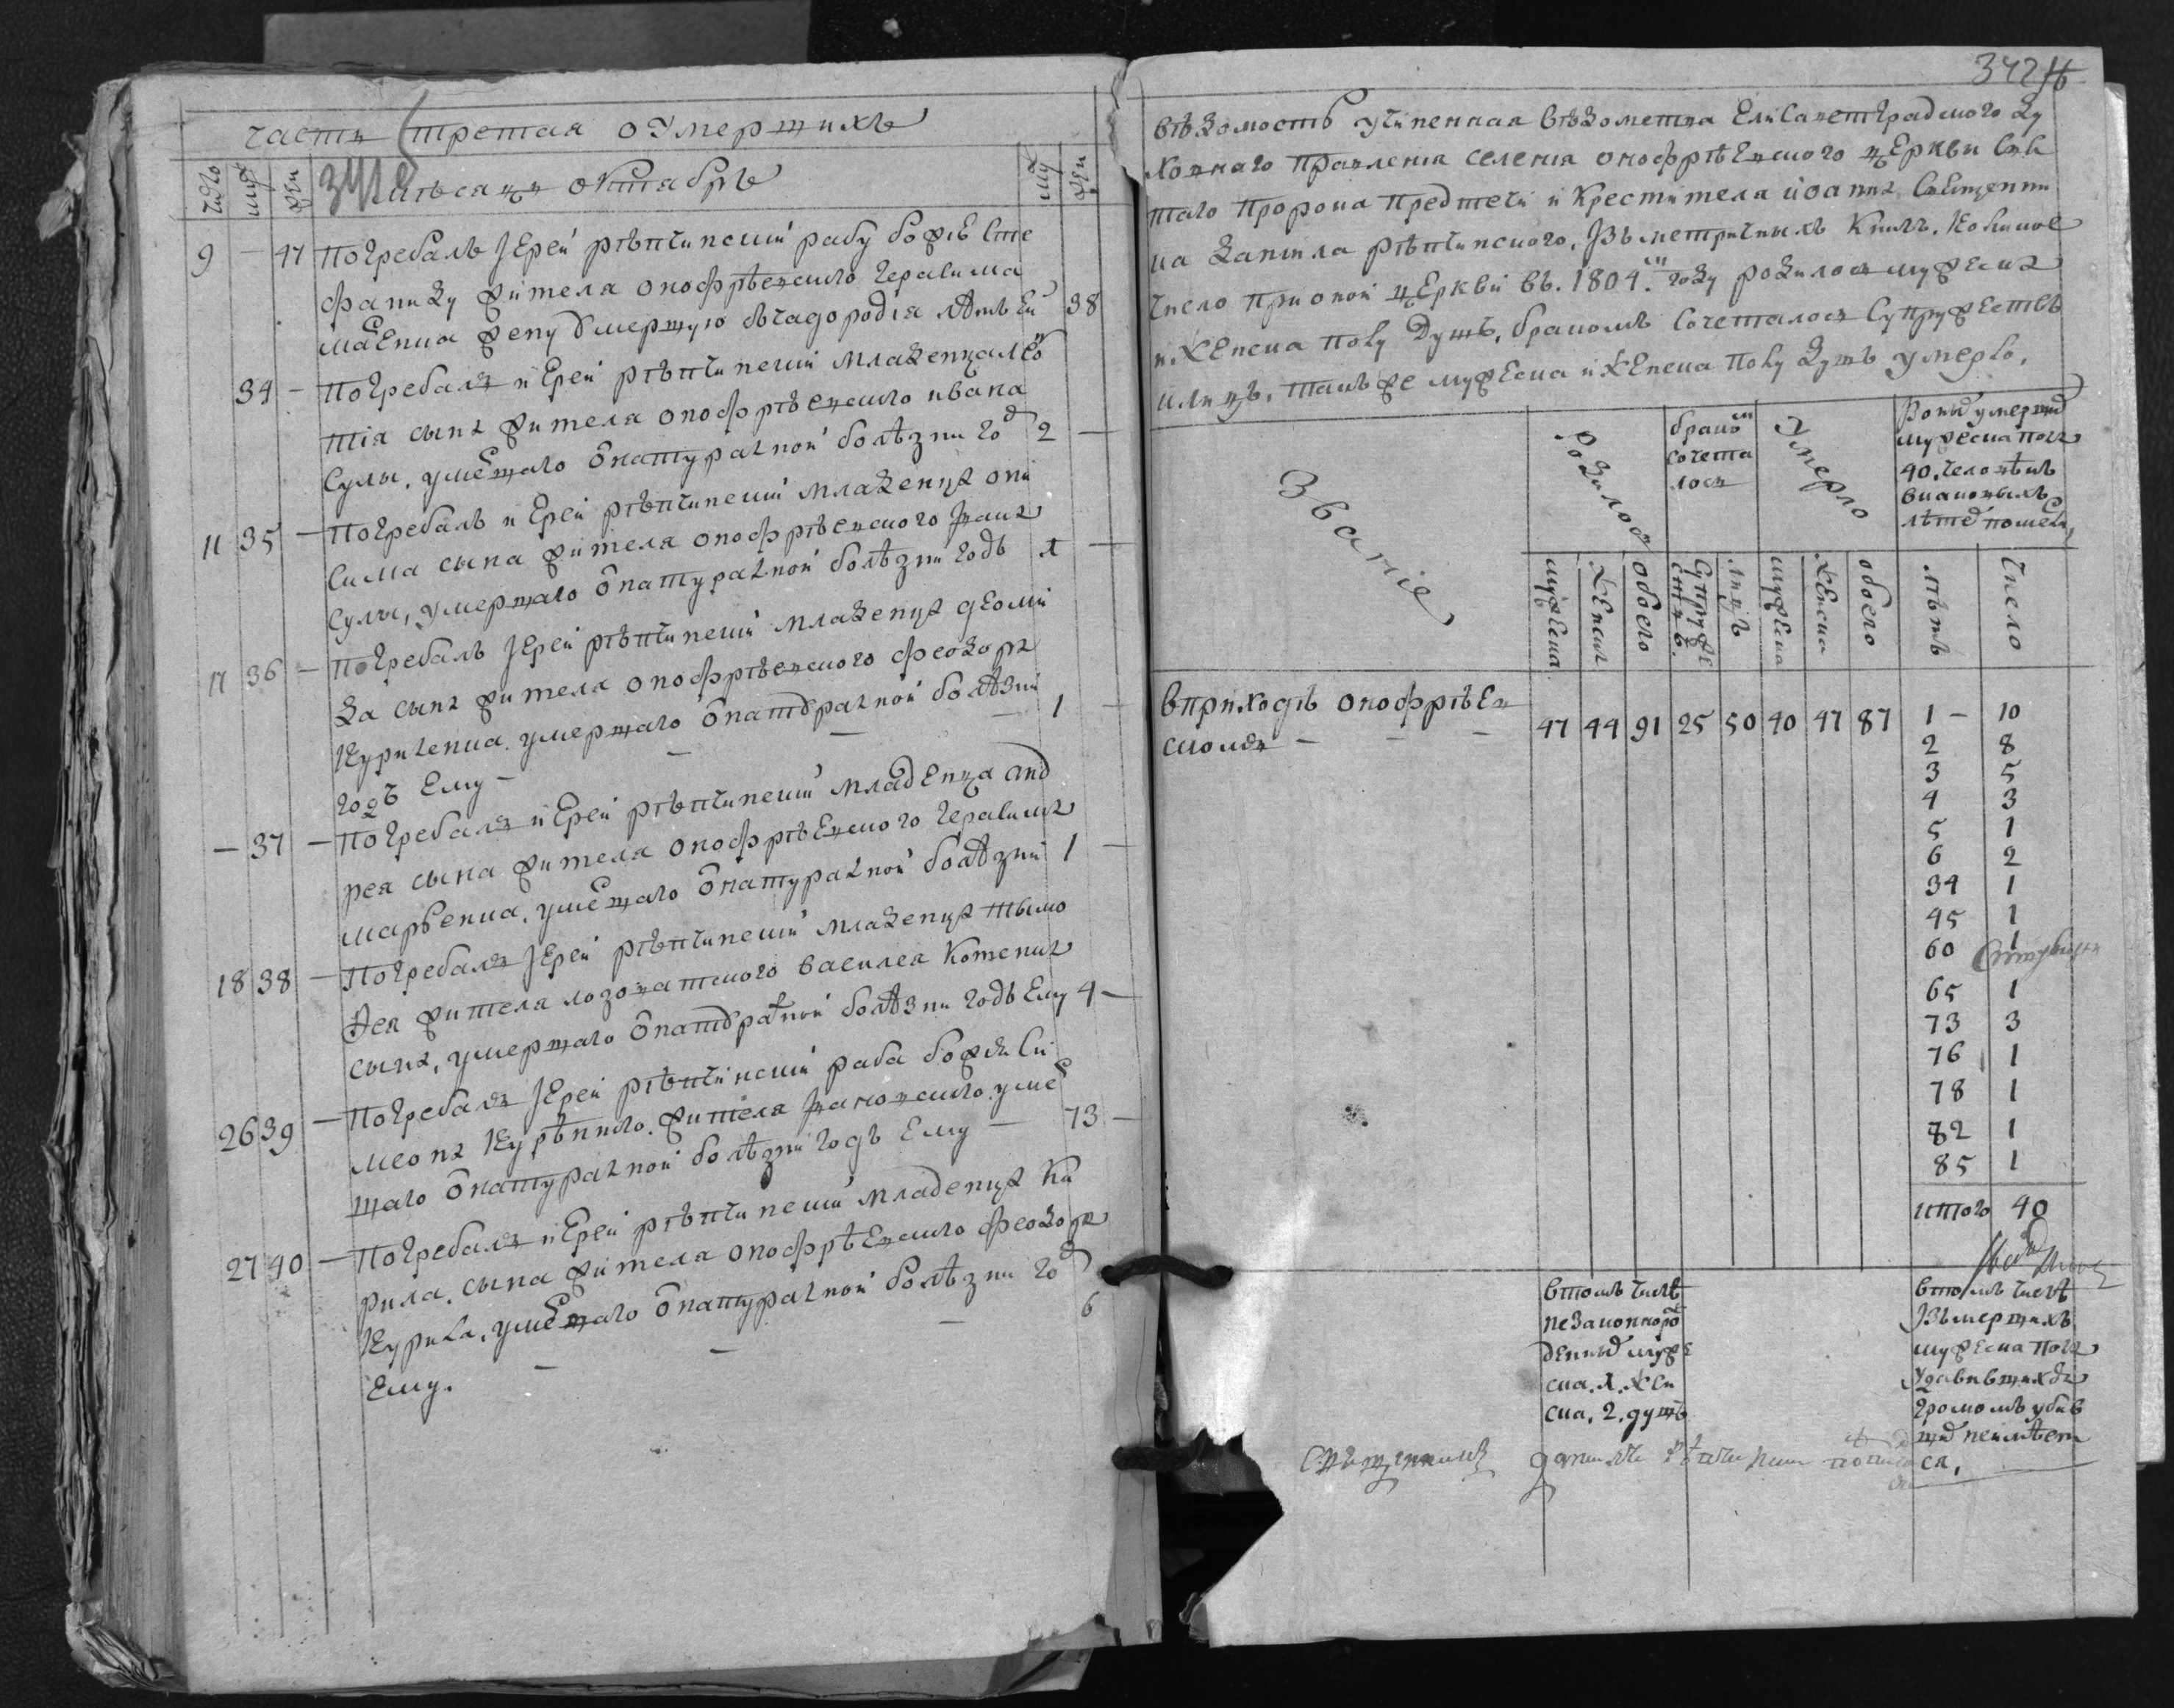 часть третая оумерших
число
муж
жен
мѣсяцъ октябрь
муж
жен
9 — 47 погребалъ Іерей рѣпчинский рабу божіе Сте
фаниду жителя онофріевского герасима
маенка жену умершую съчадородія лѣтъ ей 38
34 — погребалъ иерей рѣпчинский младенца лео
тія сына жителя онофріевского ивана
Сулы, умершаго онатуралной болѣзни год 2 —
11 35 — погребалъ иерей рѣпчинский младенца они
сима сына жителя онофріевского
Сулы, умершаго онатуралной болѣзни годъ 1 —
17 36 — погребалъ Іерей рѣпчинский младенца деоми
да сына жителя онофріевского феодора
Куриленка. умершаго онатуралной болѣзни
годъ ему — 1 —
— 37 — погребалъ иерей рѣпчинский младенца анд
рея сына жителя онофріевского герасима
марченка, умершаго онатуралной болѣзни 1 —
18 38 — погребалъ Іерей рѣпчинский младенца тымо
фея жителя лозоватского василея Котенка
сына, умершаго онатуралной болѣзни годъ ему 4 —
26 39 — погребалъ Іерей рѣпчинский раба божія Си
меона жителя умер
шаго онатуралной болѣзни годъ ему — 73 —
27 40 — погребалъ иерей рѣпчинский младенца Ки
рила, сына жителя онофріевского феодора
Курила, умершаго онатуралной болѣзни год 6
ему.
342
вѣдомость учиненная вѣдомства Елисаветградского ду
ховнаго правленія селенія онофріевского церкви свя
таго пророка предтечи и крестителя иоанна священни
ка данила рѣпчинского, Ізъ метричныхъ книгъ, коликое
число прионой церкви въ. 1804.м году родилось мужеска
и женска полу душъ, бракомъ сочеталось супружествъ
илицъ, такъ же мужеска и женска полу душъ умерло.
Званіе
родилось
бракомъ
сочета
лось
умерло
мужеска пола
40. человѣкъ
вкаковыхъ
мужеска
женска
обоего
супруже
ствъ
лицъ
мужеска
женска
обоего
лѣтъ
число
вприходѣ онофріев
скомъ — — — 47 44 91 25 50 40 47 87 1 — 10
2 8
3 5
4 3
5 1
6 2
34 1
45 1
60 1
65 1
73 3
76 1
78 1
82 1
85 1
итого 40
втомъ числѣ
незаконнорож
денных муже
ска. 1. жен
ска. 2. душъ
втомъ числѣ
Ізъмершихъ
мужеска пола
удавившихся
громомъ убив
ших неимѣет
ся,
священникъ данилъ рѣпчинский